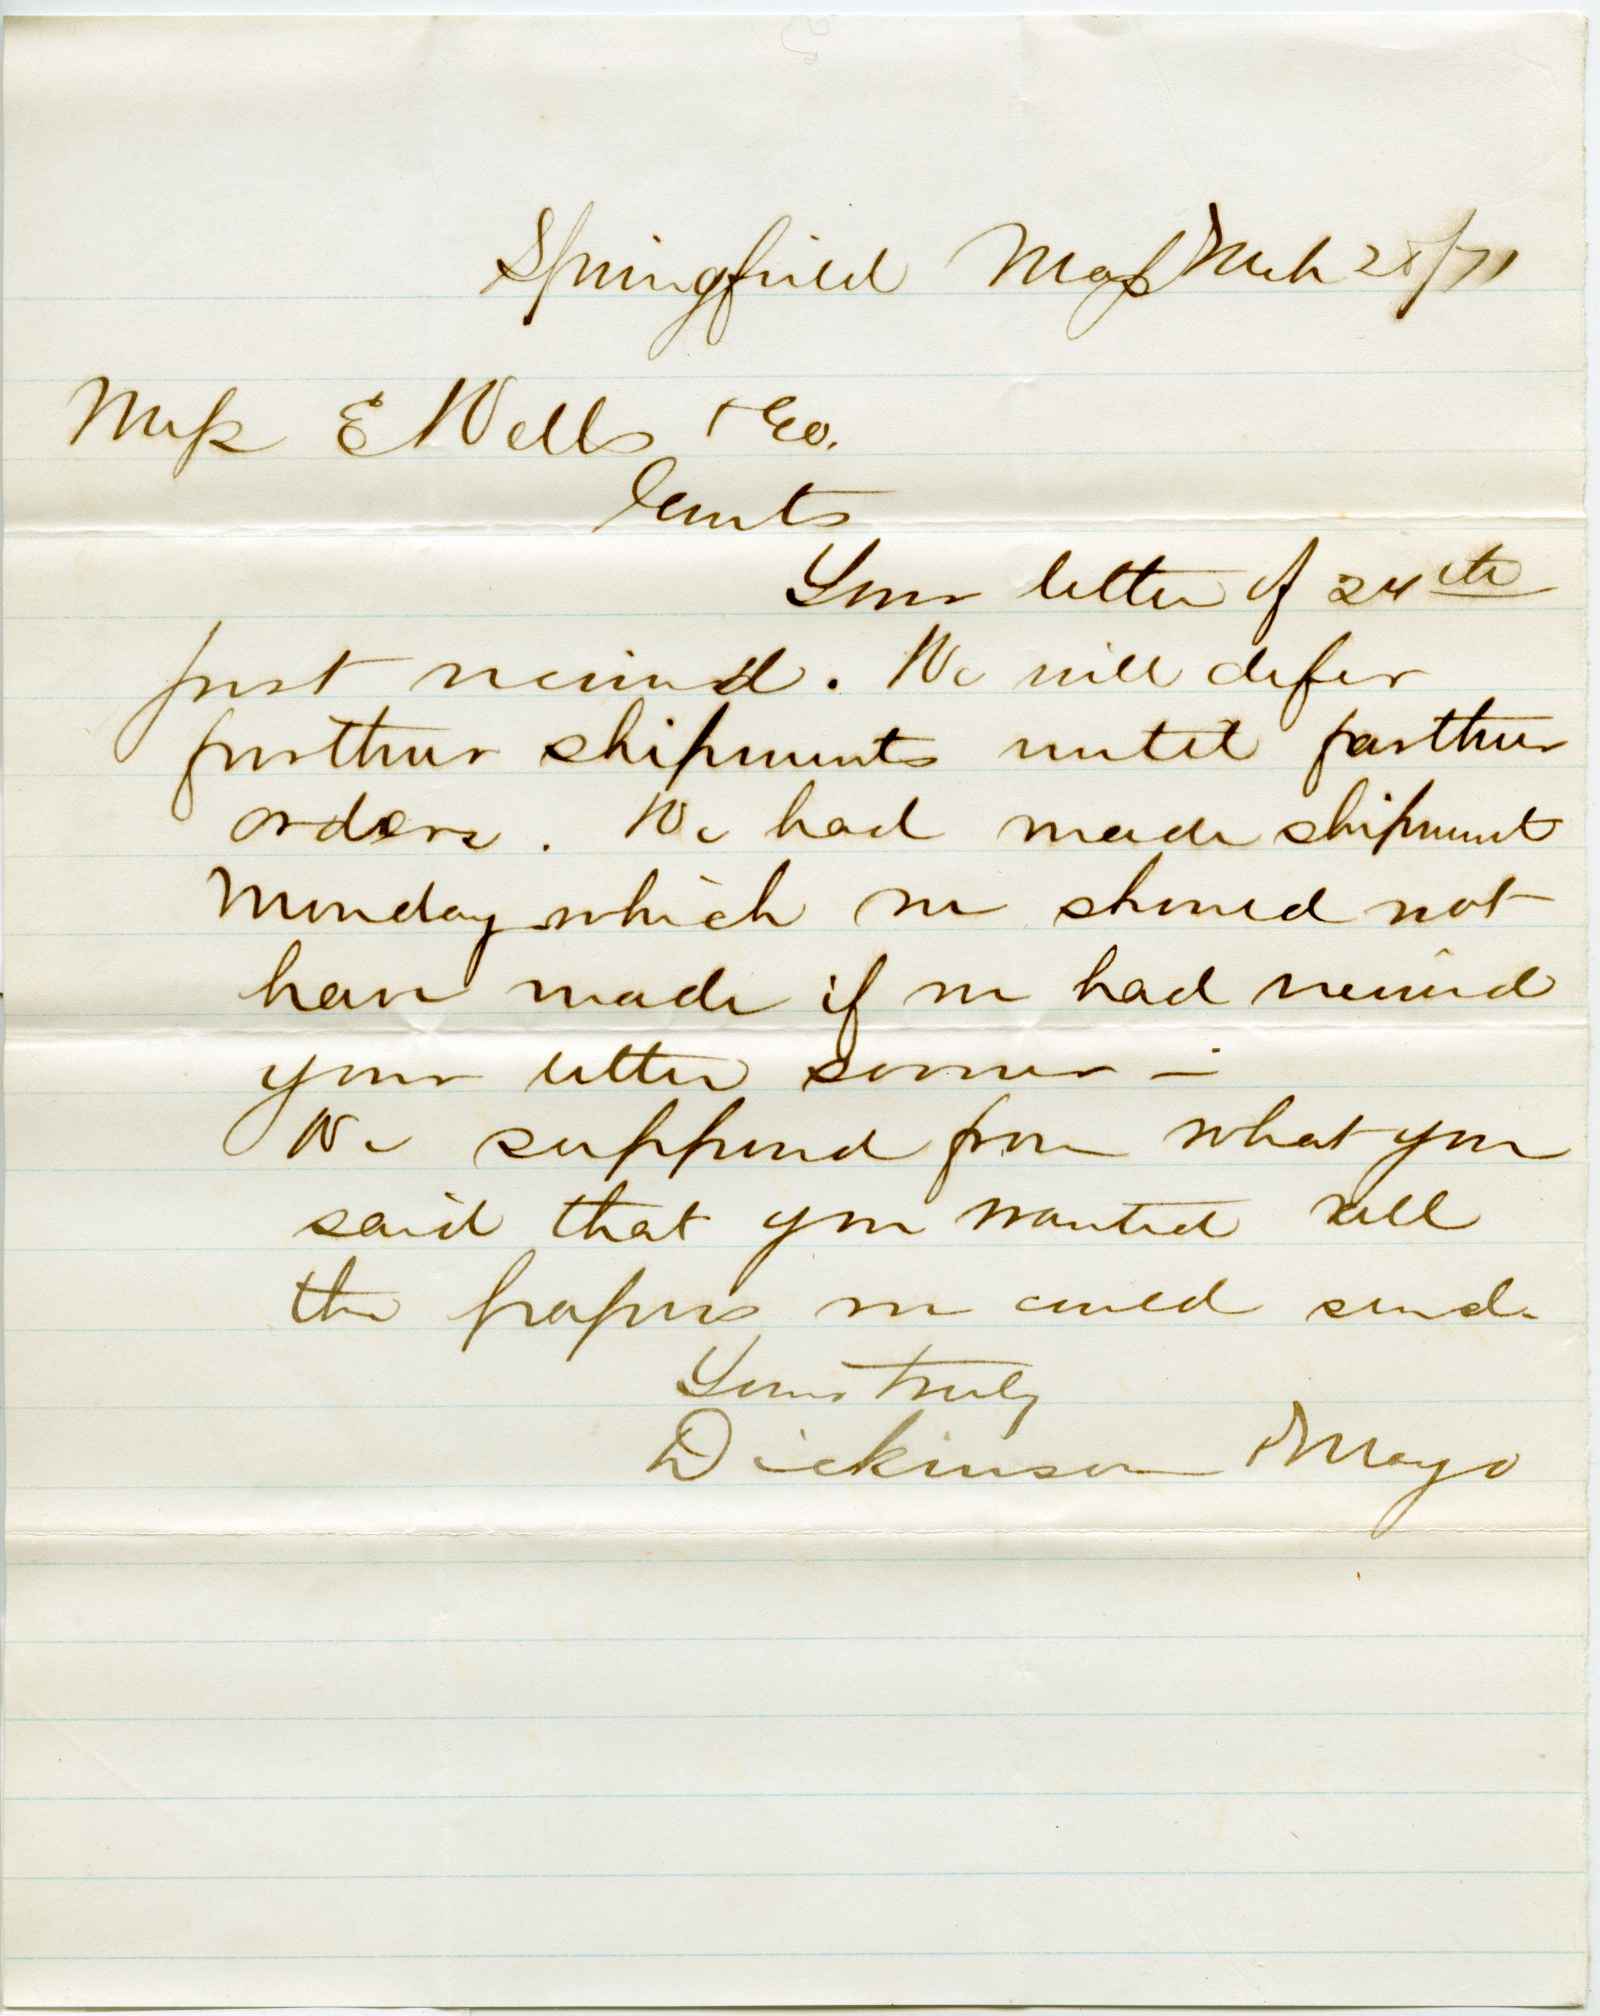 Springfield Mass Mch 28/71
Mess E Wells & Co.
Gents
Your letter of 24th
just received. We will defer
further shipments until further
orders. We had made shipment
Monday which we should not
have made if we had received
your letter sooner –
We supposed from what you
said that you wanted all
the papers we could send.
Yours truly
Dickinson & Mayo